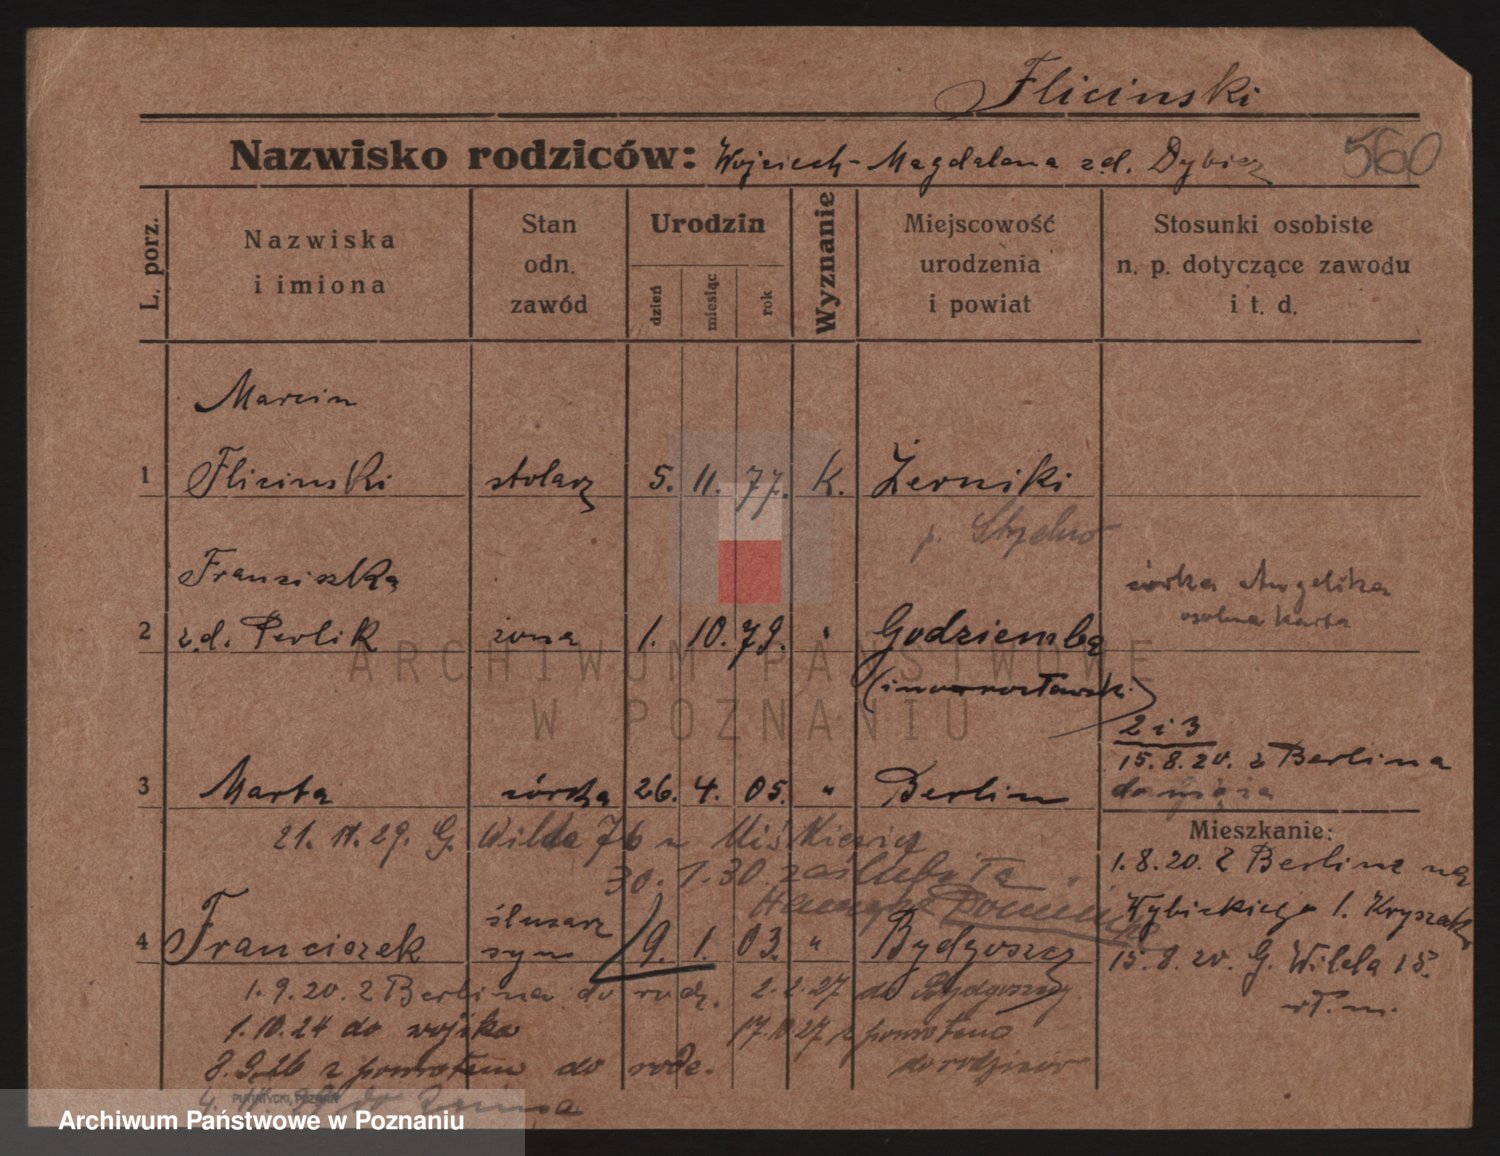 Flicinski
Nazwisko rodziców: Wojciech - Magdalena z.d. Dybicz
560
L. porz.
Nazwiska
i imiona
Stan
odn.
zawód
Urodzin
dzień
miesiąc
rok
Wyznanie
Miejscowość
urodzenia
i powiat
Stosunki osobiste
n. p. dotyczące zawodu
i t. d.
Marcin
1 Flicinski stolarz 5. 11. 77. K. Żerniki
p.
Franciszka
córka Angelika
osobna karta
2 z.d. Perlik żona 1. 10. 79. " Godziemba
(inowrocławski)
2 i 3
15.8.20. z Berlina
do męża
3 Marta córka 26. 4. 05. " Berlin
21. 11. 29. G. Wilda 76 u Miśkiewicz
30. 1. 30. zaślubiła
Mieszkanie:
1.8.20. z Berlina na
Wybickiego 1. Kryszak
15.8.20. G. Wilda 15.
wł. m.
ślusarz
4 Franciszek syn 9. 1. 03. " Bydgoszcz
1.9.20. z Berlina do rodz. 2.2.27 do Bydgoszczy
1.10.24 do wojska 17.10.27 z powrotem
do rodziców
z powrotem do rodz.
PUTIATYCKI, POZNAŃ
ARCHIWUM PAŃSTWOWE
W POZNANIU
Archiwum Państwowe w Poznaniu